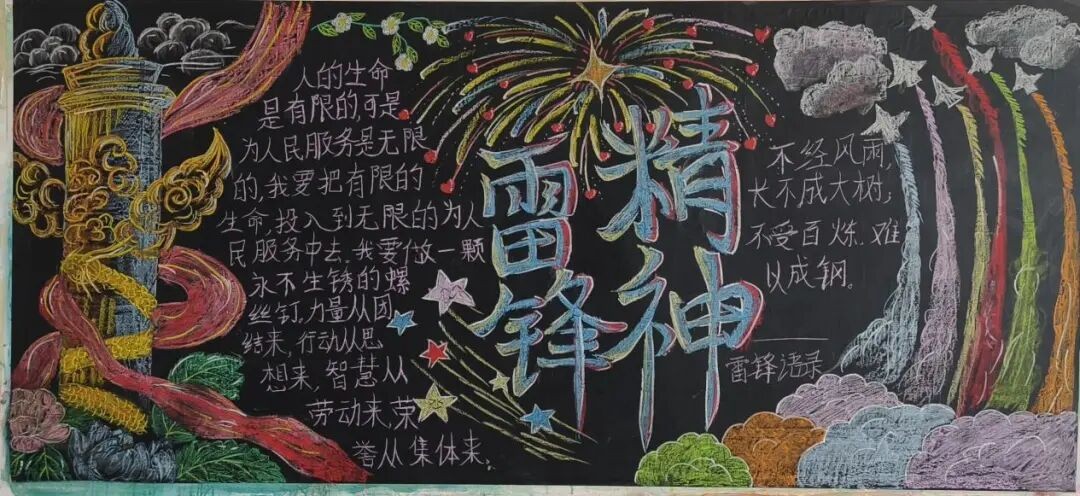 人的生命
是有限的,可是
为人民服务是无限
的,我要把有限的
生命,投入到无限的为人
民服务中去.我要做一颗
永不生锈的螺
丝钉,力量从团
结来,行动从思
想来,智慧从
劳动来,荣
誉从集体来,
雷锋
精神
不经风雨,
长不成大树;
不受百炼.难
以成钢。
——雷锋语录